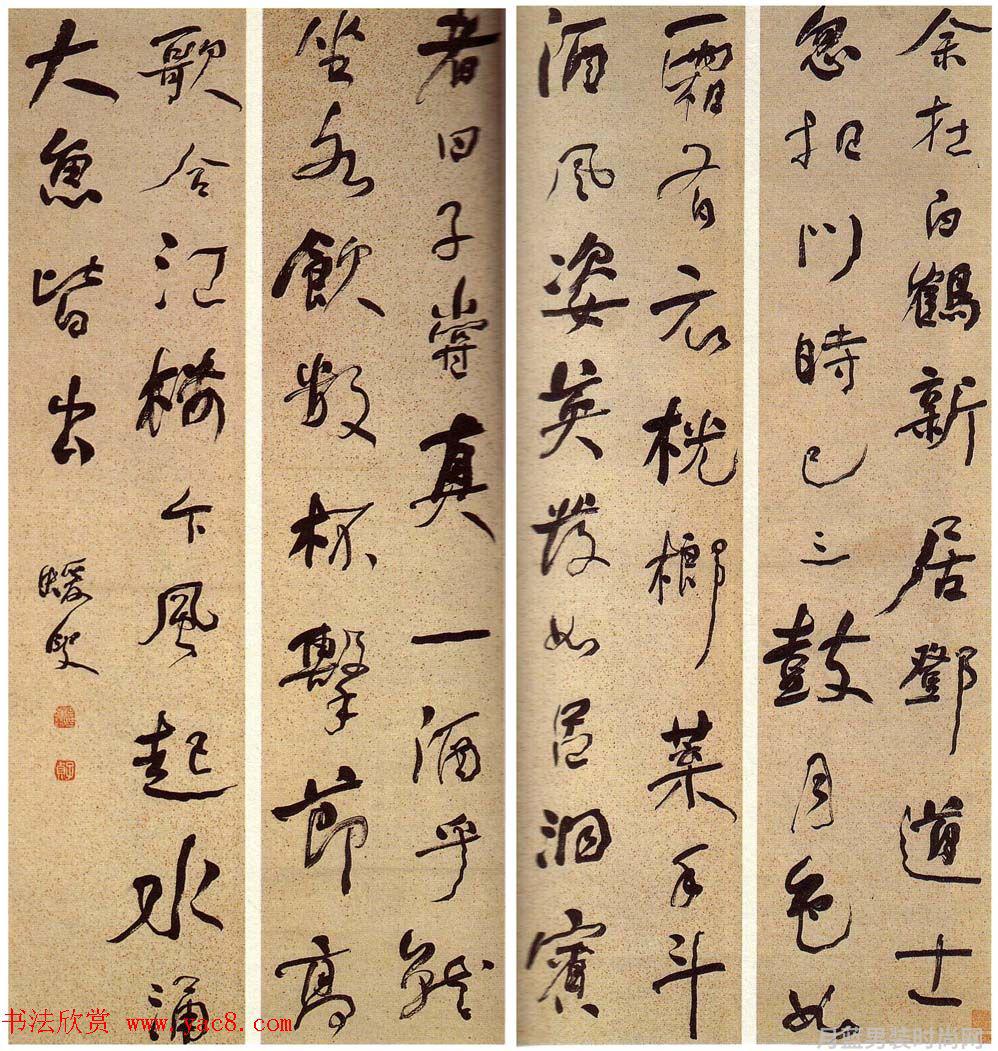 余在白鶴新居鄧道士
忽扣門時已三鼓月色如
霜有衣桄榔葉手斗
酒風姿英發如呂洞賓
者曰子嘗真一酒乎就
坐各飲數杯擊節高
歌合江樓下風起水涌
大魚皆出
蝯叟
子貞
书法欣赏 www.yac8.com
月蓝男装时尚网